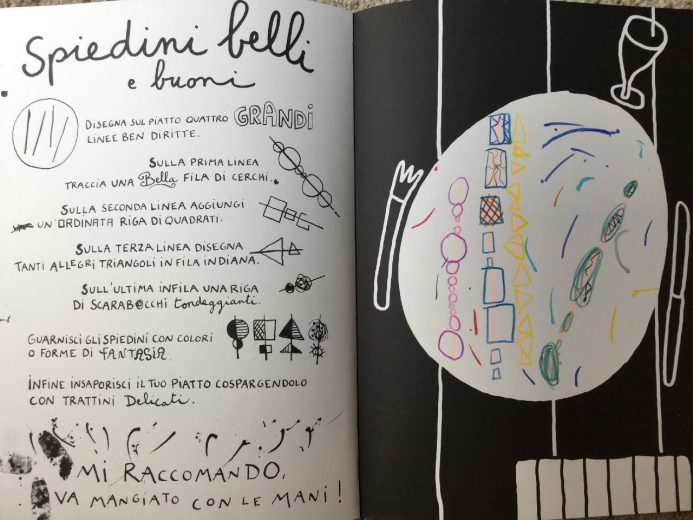 Spiedini belli
e buoni
DISEGNA SUL PIATTO QUATTRO GRANDI
LINEE BEN DIRITTE.
SULLA PRIMA LINEA
TRACCIA UNA Bella FILA DI CERCHI.
SULLA SECONDA LINEA AGGIUNGI
UN'ORDINATA RIGA DI QUADRATI.
SULLA TERZA LINEA DISEGNA
TANTI ALLEGRI TRIANGOLI IN FILA INDIANA.
SULL'ULTIMA INFILA UNA RIGA
DI SCARABOCCHI tondeggianti.
GUARNISCI GLI SPIEDINI CON COLORI
O FORME DI FANTASIA.
INFINE INSAPORISCI IL TUO PIATTO COSPARGENDOLO
CON TRATTINI Delicati.
MI RACCOMANDO,
VA MANGIATO CON LE MANI!